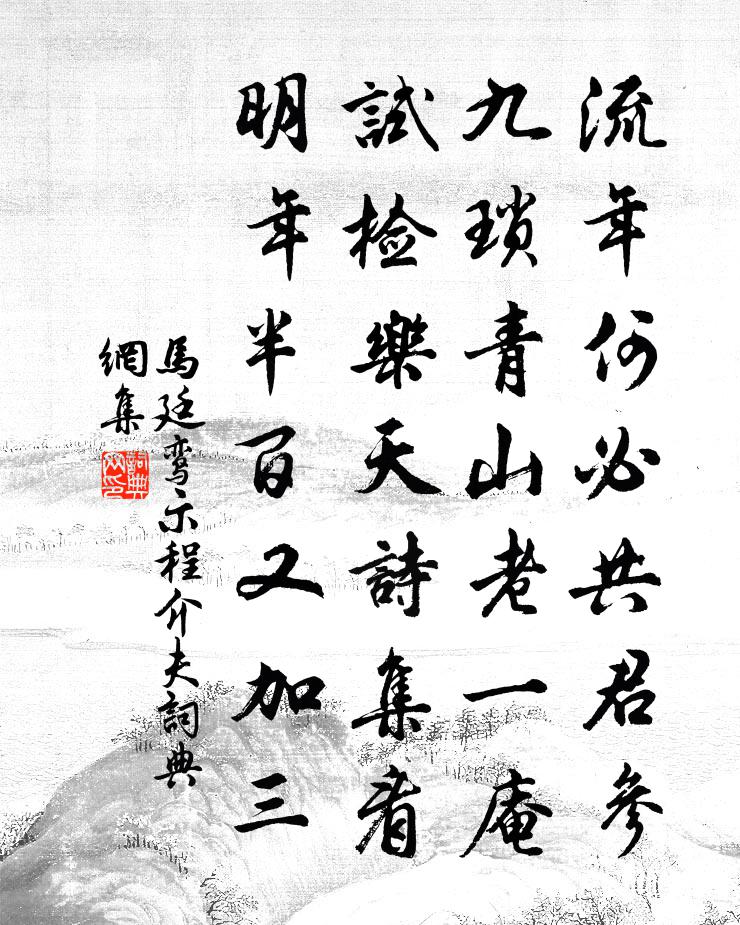 流年何必共君參
九瑣青山老一庵
試檢樂天詩集看
明年半百又加三
馬廷鸾、示程介夫詞典
網集
詞典